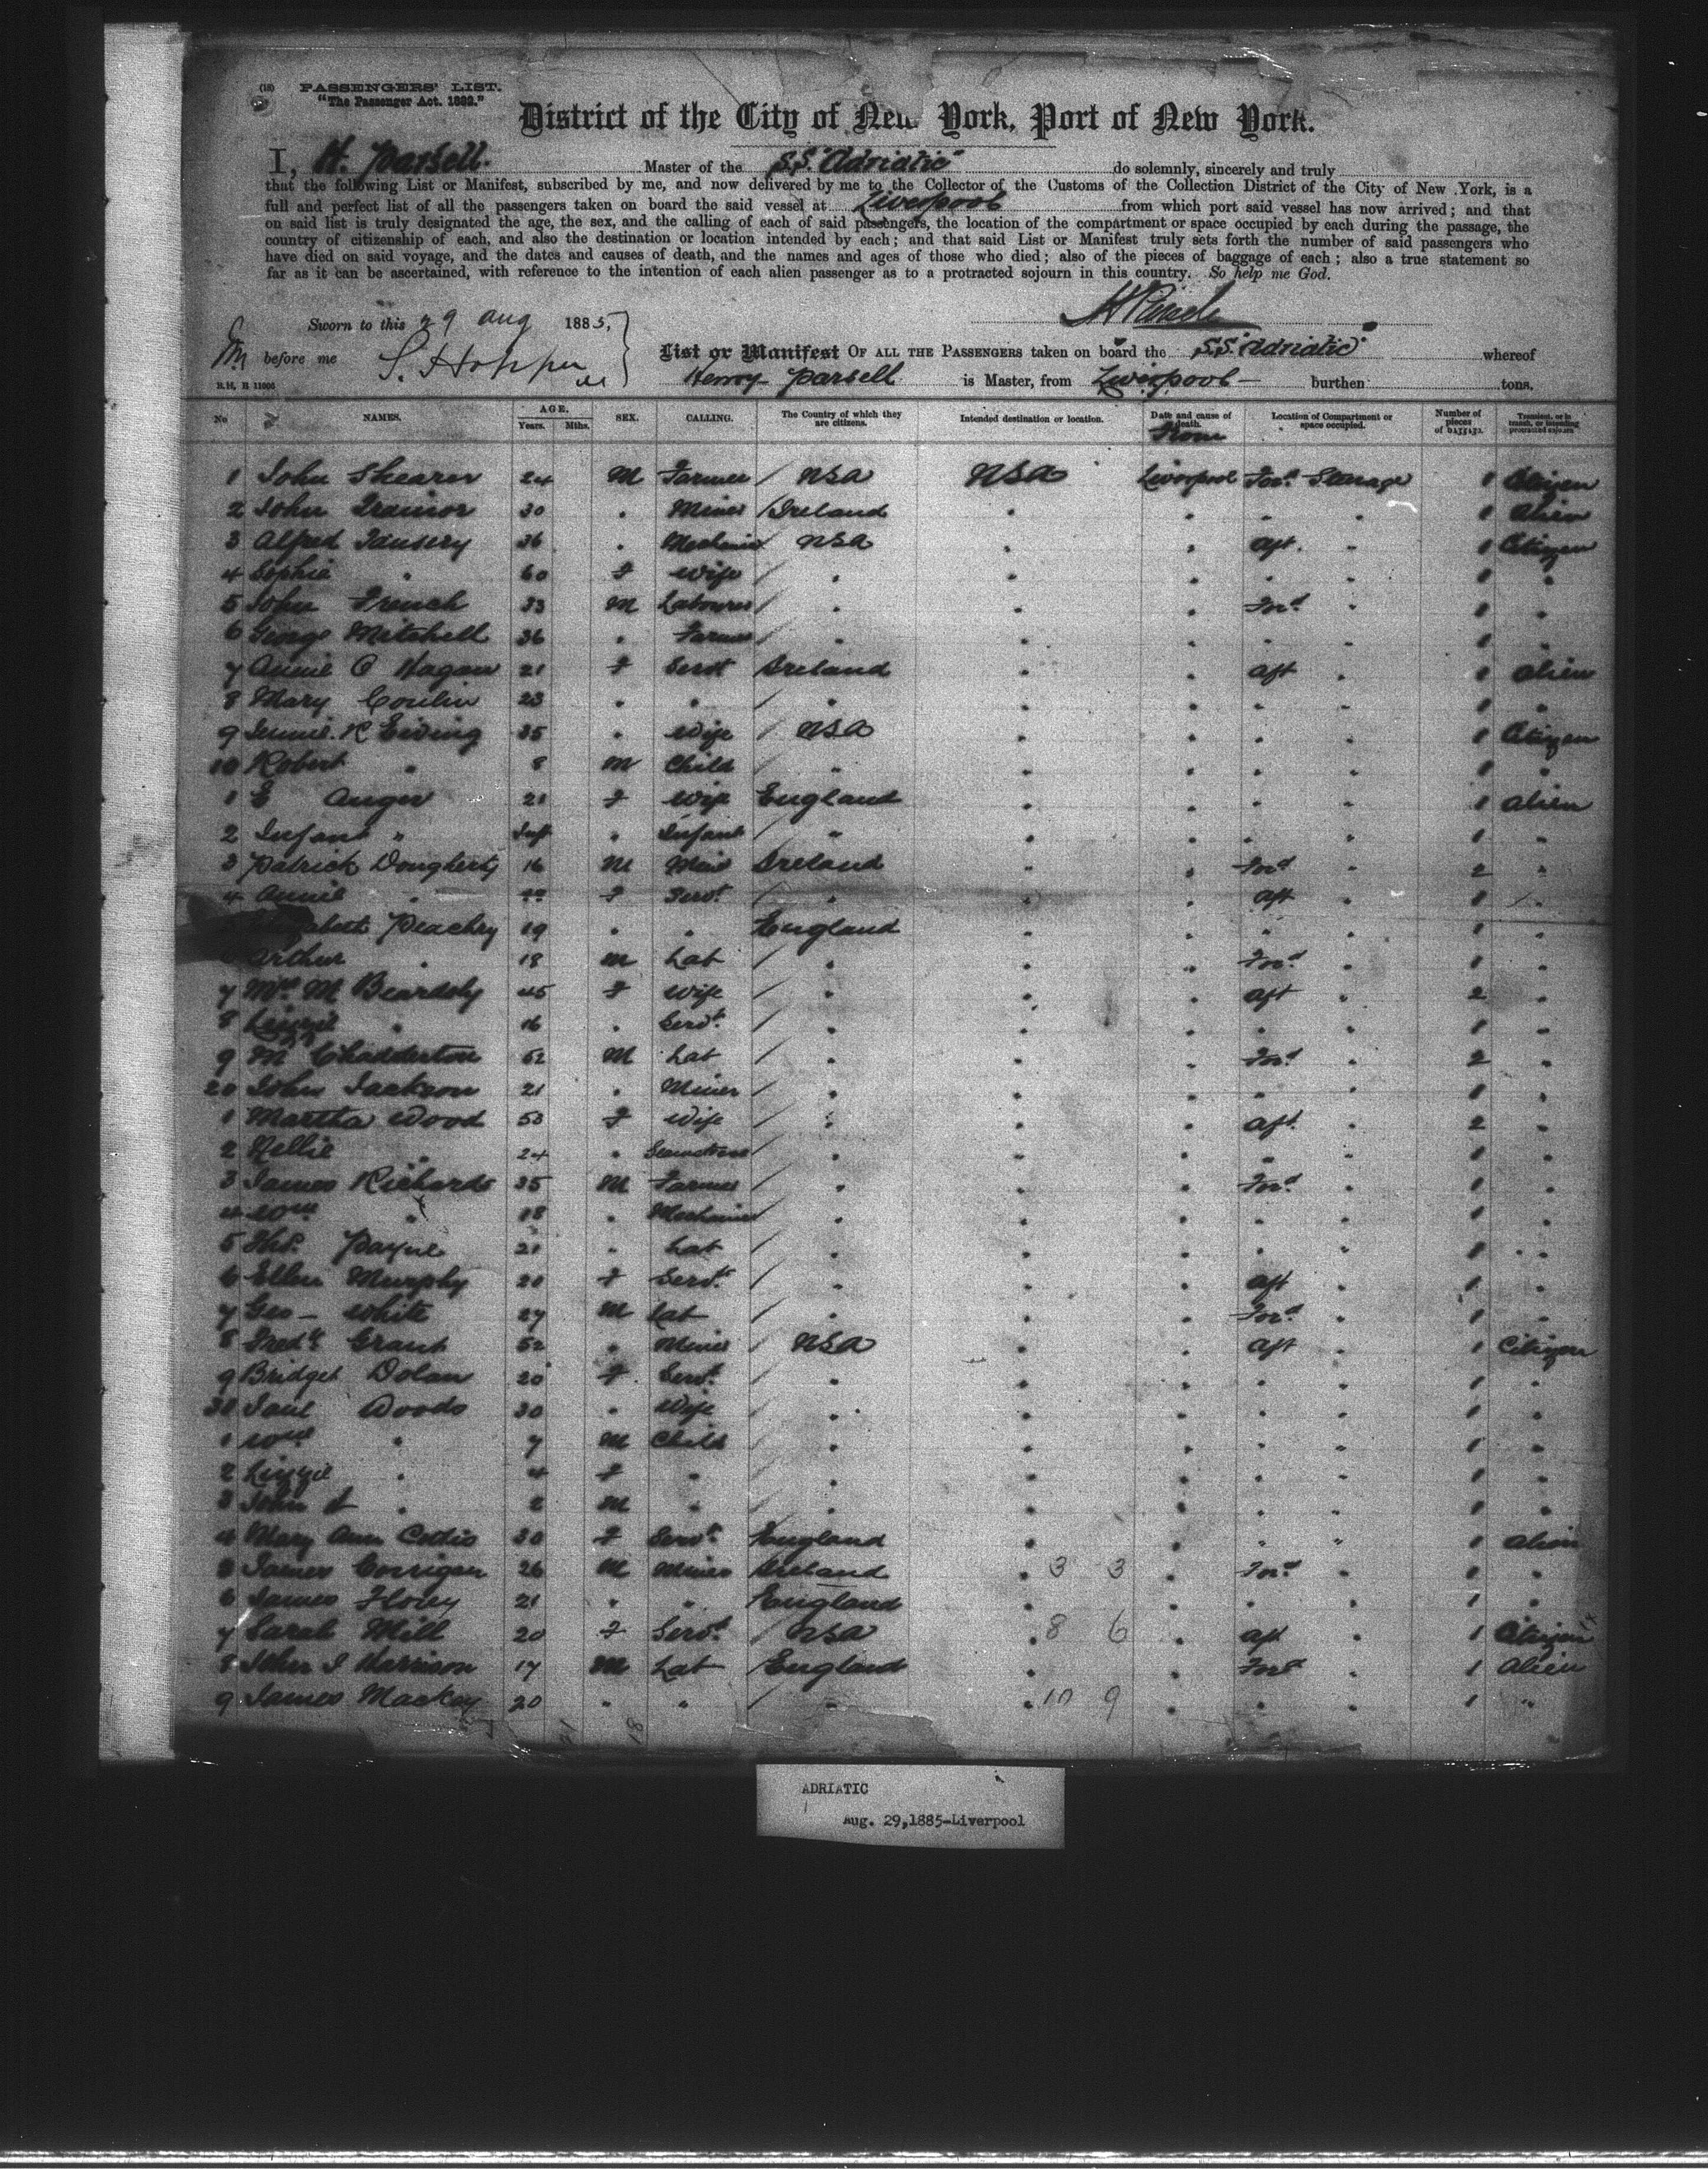 (18) PASSENGERS' LIST.
"The Passenger Act. 1882."
District of the City of New York, Port of New York.
I, H. Parsell. Master of the S.S. "Adriatic" do solemnly, sincerely and truly
that the following List or Manifest, subscribed by me, and now delivered by me to the Collector of the Customs of the Collection District of the City of New York, is a
full and perfect list of all the passengers taken on board the said vessel at Liverpool from which port said vessel has now arrived; and that
on said list is truly designated the age, the sex, and the calling of each of said passengers, the location of the compartment or space occupied by each during the passage, the
country of citizenship of each, and also the destination or location intended by each; and that said List or Manifest truly sets forth the number of said passengers who
have died on said voyage, and the dates and causes of death, and the names and ages of those who died; also of the pieces of baggage of each; also a true statement so
far as it can be ascertained, with reference to the intention of each alien passenger as to a protracted sojourn in this country. So help me God.
Sworn to this 29 Aug 1885,
before me S. Hopper
List or Manifest OF ALL THE PASSENGERS taken on board the S.S. Adriatic whereof
Henry Parsell is Master, from Liverpool burthen tons.
No NAMES. AGE. Years. Mths. SEX. CALLING. The Country of which they are citizens. Intended destination or location. Date and cause of death. From Location of Compartment or space occupied. Number of pieces of baggage. Transient, or in transit, or intending protracted sojourn
1 John Shearer 24 M Farmer USA USA Liverpool For'd Steerage 1 Citizen
2 John Trainor 30 " Miner Ireland " " " " 1 Alien
3 Alfred 36 " Mechanic USA " " Aft. " 1 Citizen
4 Sophia " 60 F Wife " " " " " 1 "
5 John French 33 M Labourer " " " For'd " 1 "
6 George Mitchell 36 " Farmer " " " " " 1 "
7 Annie O Hagan 21 F Servt Ireland " " Aft " 1 Alien
8 Mary Conlin 23 " " " " " " " 1 "
9 Jennie R Ewing 35 " Wife USA " " " " 1 Citizen
10 Robert " 8 M Child " " " " " 1 "
1 E Anger 21 F Wife England " " " " 1 Alien
2 Infant " Inft " Infant " " " " " 1 "
3 Patrick Dougherty 16 M Miner Ireland " " For'd " 2 "
4 Annie " F Servt " " " Aft " 1 "
Peachey 19 " " England " " " " 1 "
Arthur " 18 M Lab " " " For'd " 1 "
7 Mrs M Beardsly 45 F Wife " " " Aft " 2 "
8 Lizzie " 16 " Servt " " " " " 1 "
9 M Chadderton 52 M Lab " " " For'd " 2 "
20 John Jackson 21 " Miner " " " " " 1 "
1 Martha Wood 53 F Wife " " " Aft " 2 "
2 Nellie " 24 " " " " " " 1 "
3 James Richards 35 M Farmer " " " For'd " 1 "
4 Wm " 18 " Mechanic " " " " " 1 "
5 Thos. Payne 21 " Lab " " " " " 1 "
6 Ellen Murphy 20 F Servt " " " Aft " 1 "
7 Geo - White 27 M Lab " " " For'd " 1 "
8 Fredk Grant 52 " Miner USA " " Aft " 1 Citizen
9 Bridget Dolan 20 F Servt " " " " " 1 "
30 Woods 30 " Wife " " " " " 1 "
1 Wm " 7 M Child " " " " " 1 "
2 Lizzie " 4 F " " " " " " 1 "
3 John " 2 M " " " " " " 1 "
4 Mary Ann 30 F Servt England " " " " 1 Alien
5 James Corrigan 26 M Miner Ireland " 3 3 " For'd " 1 "
6 James 21 " " England " " " " 1 "
7 Sarah Mill 20 F Servt USA " 8 6 " Aft " 1 Citizen
8 John J Harrison 17 M Lab England " " For'd " 1 Alien
9 James Mackay 20 " " " " 10 9 " " " 1 "
ADRIATIC
Aug. 29,1885-Liverpool